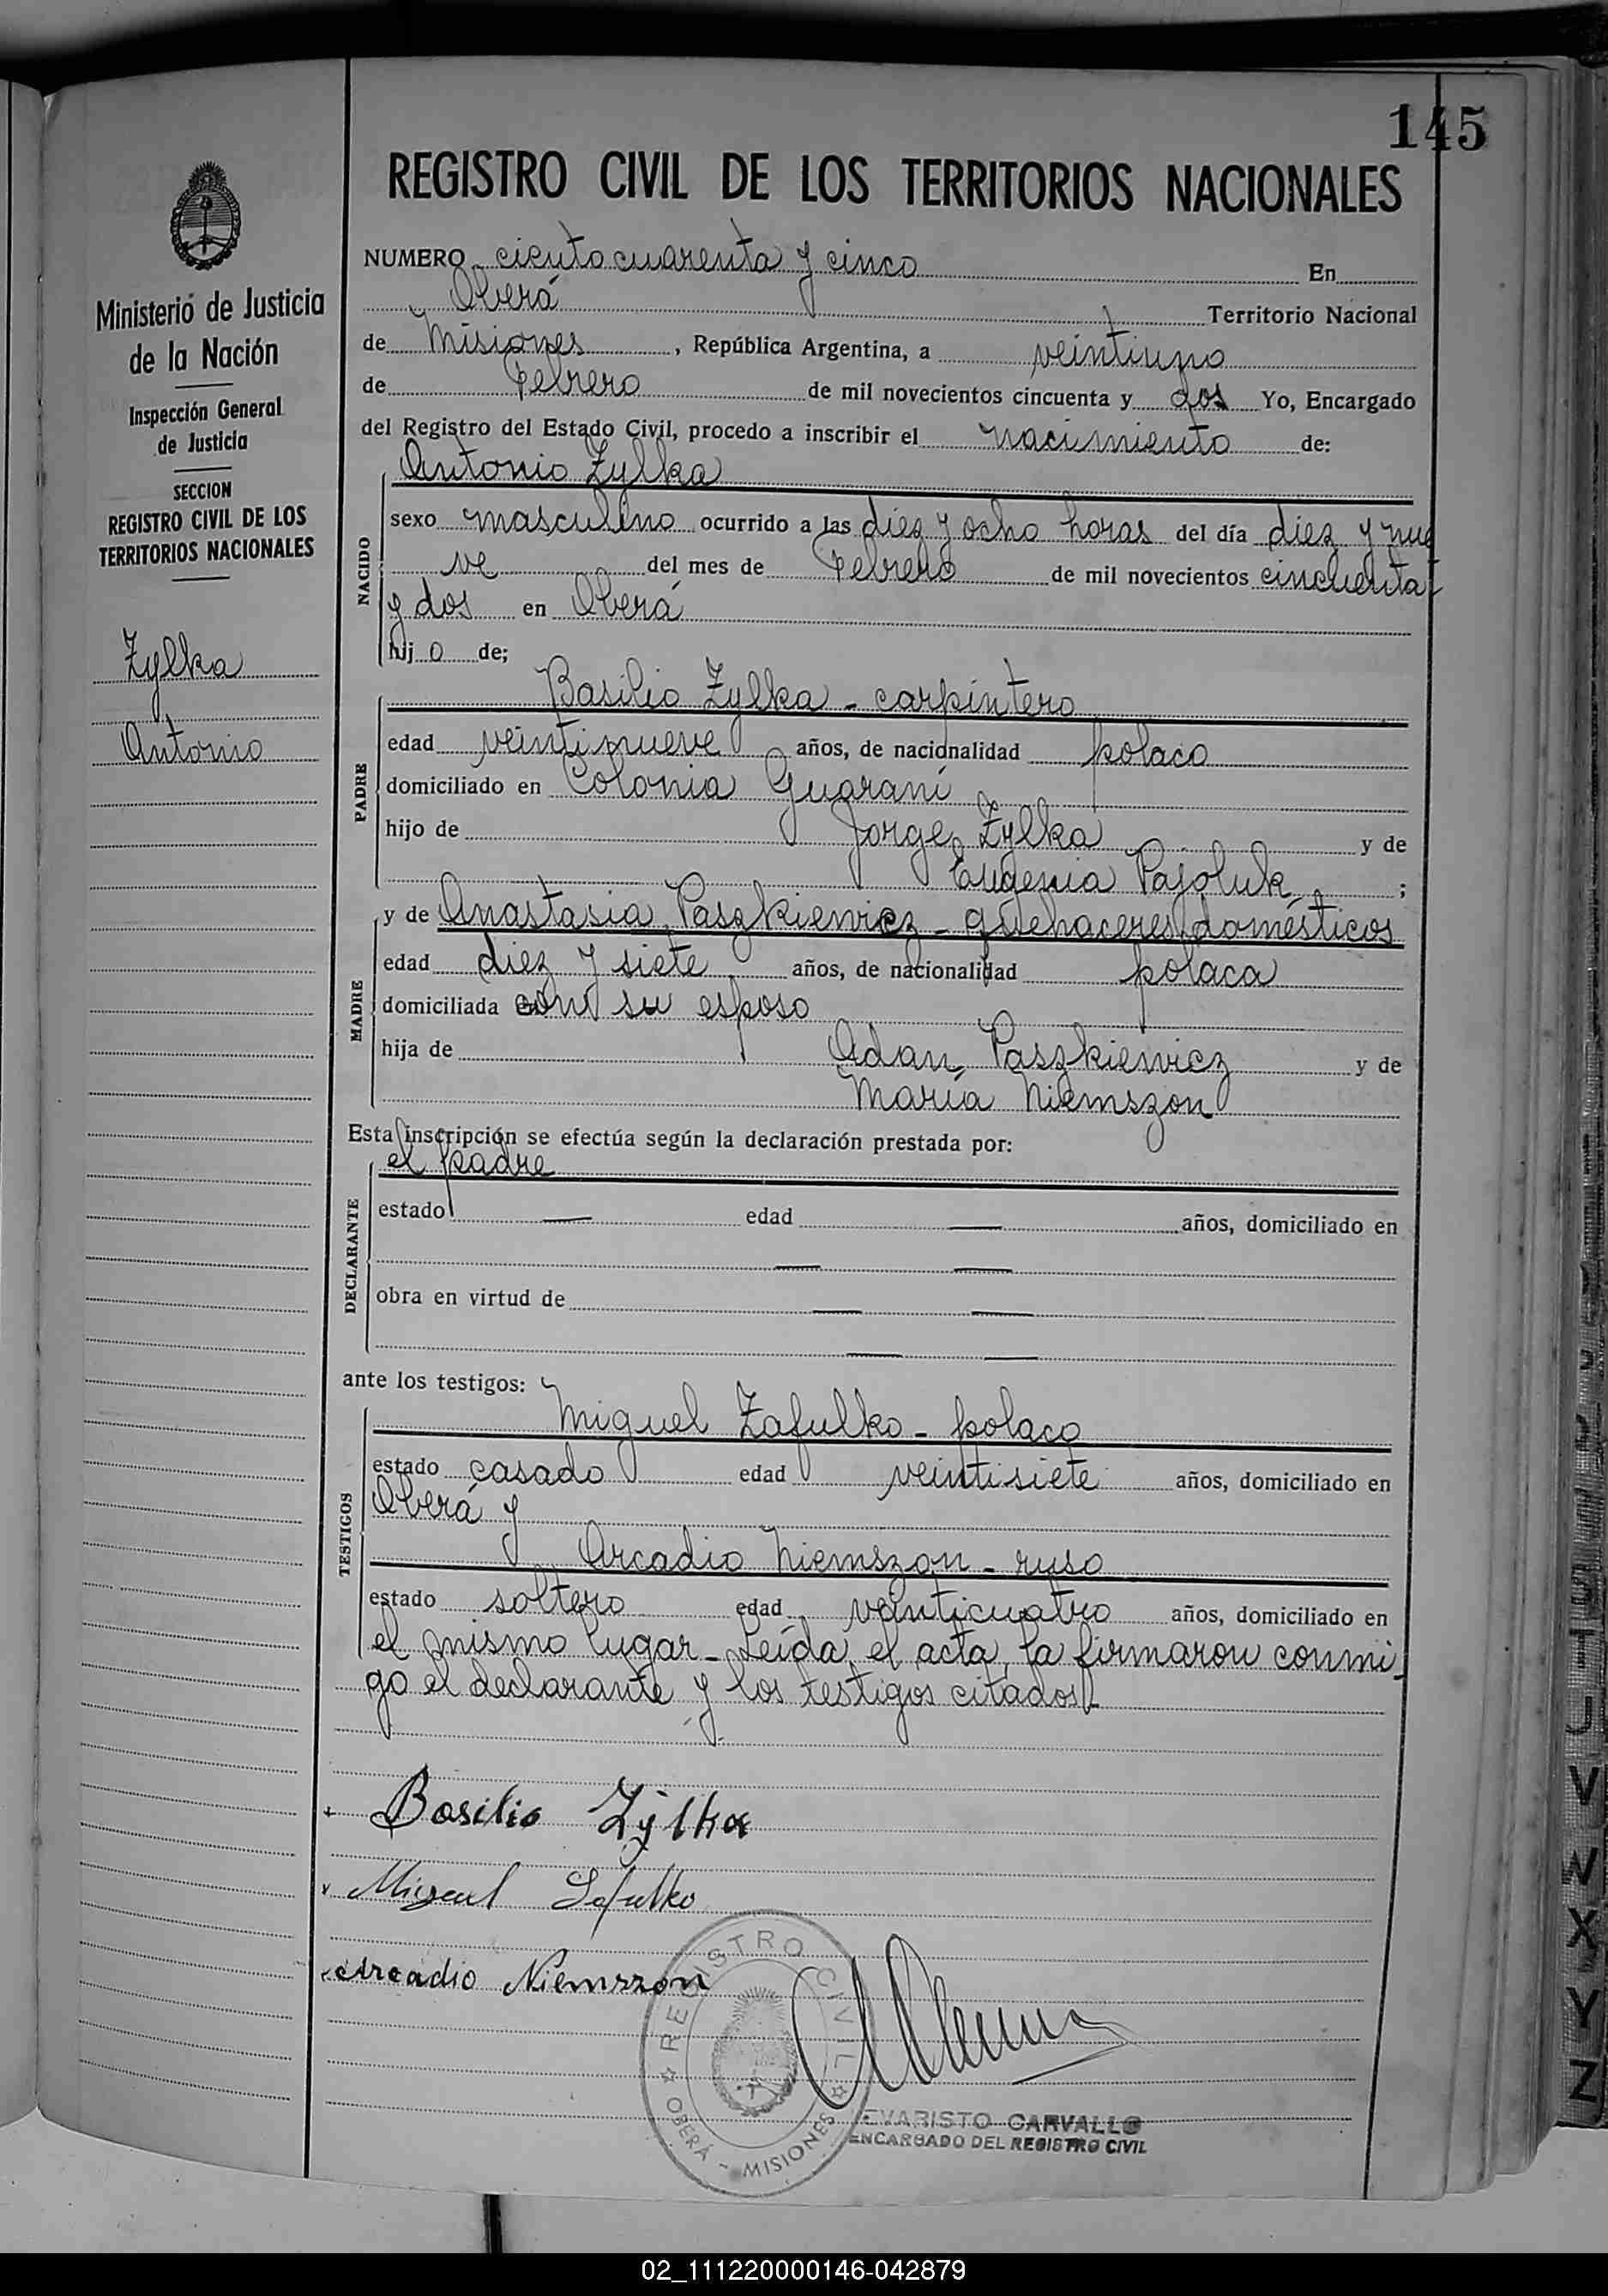 145
REGISTRO CIVIL DE LOS TERRITORIOS NACIONALES
Ministerio de Justicia
de la Nación
Inspección General
de Justicia
SECCION
REGISTRO CIVIL DE LOS
TERRITORIOS NACIONALES
Zylka
Antonio
NUMERO ciento cuarenta y cinco En
Oberá Territorio Nacional
de Misiones, República Argentina, a veintiuno
de Febrero de mil novecientos cincuenta y dos Yo, Encargado
del Registro del Estado Civil, procedo a inscribir el nacimiento de:
Antonio Zylka
NACIDO
sexo masculino ocurrido a las diez y ocho horas del día diez y nue
ve del mes de Febrero de mil novecientos cincuenta
y dos en Oberá
hijo de;
Basilio Zylka - carpintero
PADRE
edad veintinueve años, de nacionalidad polaco
domiciliado en Colonia Guaraní
hijo de Jorge Zylka y de
Eugenia Pasoluk ;
y de Anastasia Paszkiewicz - quehaceres domésticos
MADRE
edad diez y siete años, de nacionalidad polaca
domiciliada con su esposo
hija de Adan Paszkiewicz y de
María Niemszon
Esta inscripción se efectúa según la declaración prestada por:
el padre
DECLARANTE
estado — edad — años, domiciliado en
— —
obra en virtud de — —
— —
ante los testigos:
Miguel Zafulko - polaco
TESTIGOS
estado casado edad veintisiete años, domiciliado en
Oberá y
Arcadio Niemszon - ruso
estado soltero edad veinticuatro años, domiciliado en
el mismo lugar - Leída el acta, la firmaron conmi-
go el declarante y los testigos citados -
Basilio Zylka
Miguel Zafulko
Arcadio Niemszon
REGISTRO CIVIL
OBERÁ - MISIONES
EVARISTO CARVALLO
ENCARGADO DEL REGISTRO CIVIL
U
V
W
X
Y
Z
02_111220000146-042879